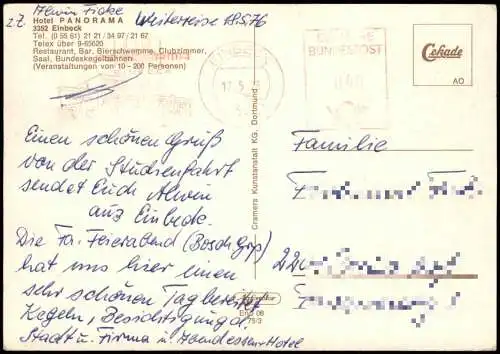 z.Z. Alwin Ficke Weiterreise 18.5.76
Hotel PANORAMA
3352 Einbeck
Tel. (0 55 61) 21 21 / 34 97 / 21 67
Telex über 9-65620
Restaurant, Bar, Bierschwemme, Clubzimmer,
Saal, Bundeskegelbahnen
(Veranstaltungen von 10 - 200 Personen)
EINBECK
17.5.
DEUTSCHE
BUNDESPOST
040
Cekade
AO
Einen schönen Gruß
von der Studienfahrt
sendet Euch Alwin
aus Einbeck.
Die Fa. Feierabend (Bosch Grp)
hat uns hier einen
sehr schönen Tag bereitet
Kegeln, Besichtigung d.
Stadt u. Firma u. Hotel
Cramers Kunstanstalt KG, Dortmund
Familie
220
Ebg 06
75/3